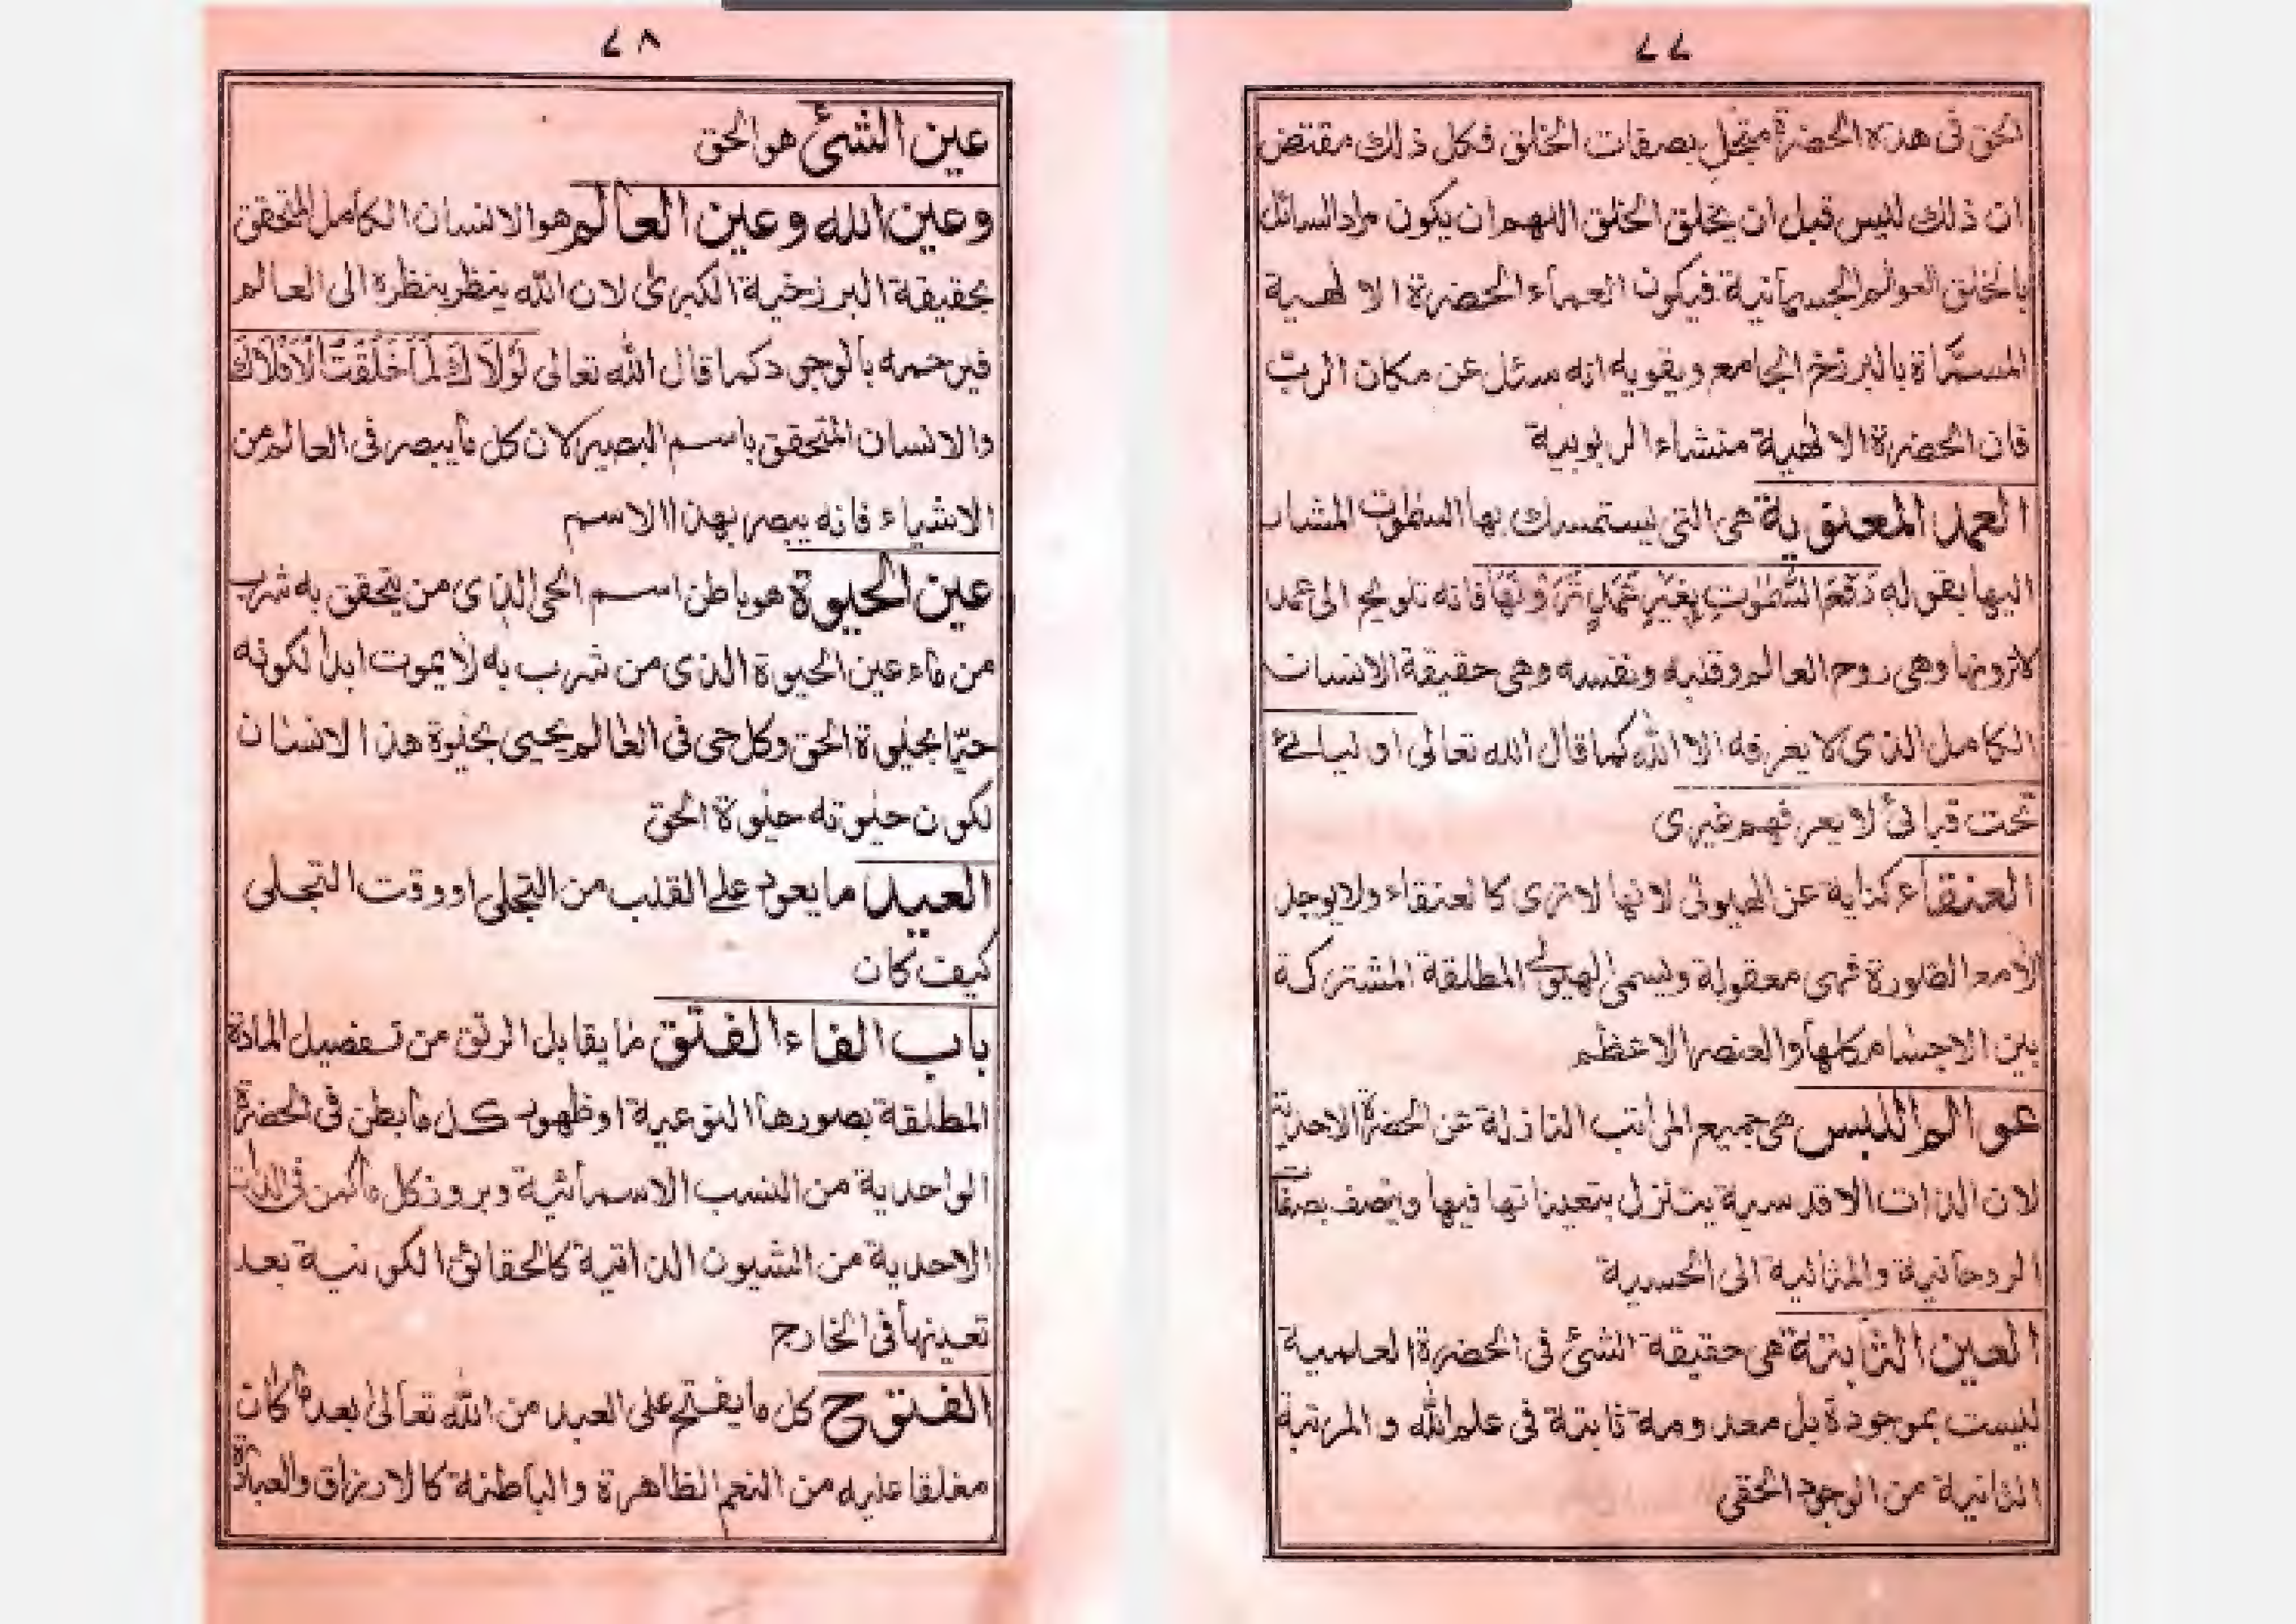 ٧٧
الحق فى هذه الحضرة متجل بصفات الخلق فكل ذلك مقتض
ان ذلك ليس قبل ان يخلق الخلق اللهم ان يكون مراد السائل
بالخلق العوالم الجسمانية فيكون العماء الحضرة الالهية
المسماة بالبرزخ الجامع ويقويه انه سئل عن مكان الرب
فان الحضرة الالهية منشاء الربوبية
العمد المعنوية هى التى يستمسك بها السمٰوٰت المشار
اليها بقوله رَفَعَ السَّمٰوٰتِ بِغَيْرِ عَمَدٍ تَرَوْنَهَا فانه تلويح الى عمد
لاترونها وهى روح العالم وقلبه ونفسه وهى حقيقة الانسان
الكامل الذى لا يعرفه الا الله كما قال الله تعالى اوليائى
تحت قبائى لا يعرفهم غيرى
العنقاء كناية عن الهيولى لانها لاترى كالعنقاء ولايوجد
الامع الصورة فهى معقولة ويسمى الهيولى المطلقة المشتركة
بين الاجسام كلها والعنصر الاعظم
عوالم اللبس هى جميع المراتب النازلة عن الحضرة الاحدية
لان الذات الاقدسية يتنزل بتعيناتها فيها ويتصف بصفات
الروحانية والمثالية الى الحسية
العين الثابتة هى حقيقة الشئ فى الحضرة العلمية
ليست بموجودة بل معدومة ثابتة فى علم الله و المرتبة
الثانية من الوجود الحقى
٧٨
عين الشئ هو الحق
وعين الله وعين العالم هو الانسان الكامل المتحقق
بحقيقة البرزخية الكبرى لان الله ينظر بنظره الى العالم
فيرحمه بالوجود كما قال الله تعالى لَوْلَاكَ لَمَا خَلَقْتُ الْاَفْلَاكَ
والانسان المتحقق باسم البصير لان كل مايبصر فى العالم من
الاشياء فانه يبصر بهذا الاسم
عين الحيوة هو باطن اسم الحى الذى من يتحقق به شرب
من ماء عين الحيوة الذى من شرب به لايموت ابدا لكونه
حيّا بحيٰوة الحق وكل حى فى العالم يحيى بحيٰوة هذا الانسان
لكون حيٰوته حيٰوة الحق
العيد مايعود على القلب من التجلى او وقت التجلى
كيف كان
باب الفاء الفتق مايقابل الرتق من تفصيل المادة
المطلقة بصورها النوعية او ظهور كل مابطن فى الحضرة
الواحدية من النسب الاسمائية وبروز كل ماكمن فى الذات
الاحدية من الشيون الذاتية كالحقائق الكونية بعد
تعينها فى الخارج
الفتوح كل مايفتح على العبد من الله تعالى بعد ما كان
مغلقا عليه من النعم الظاهرة والباطنة كالارزاق والعبادة